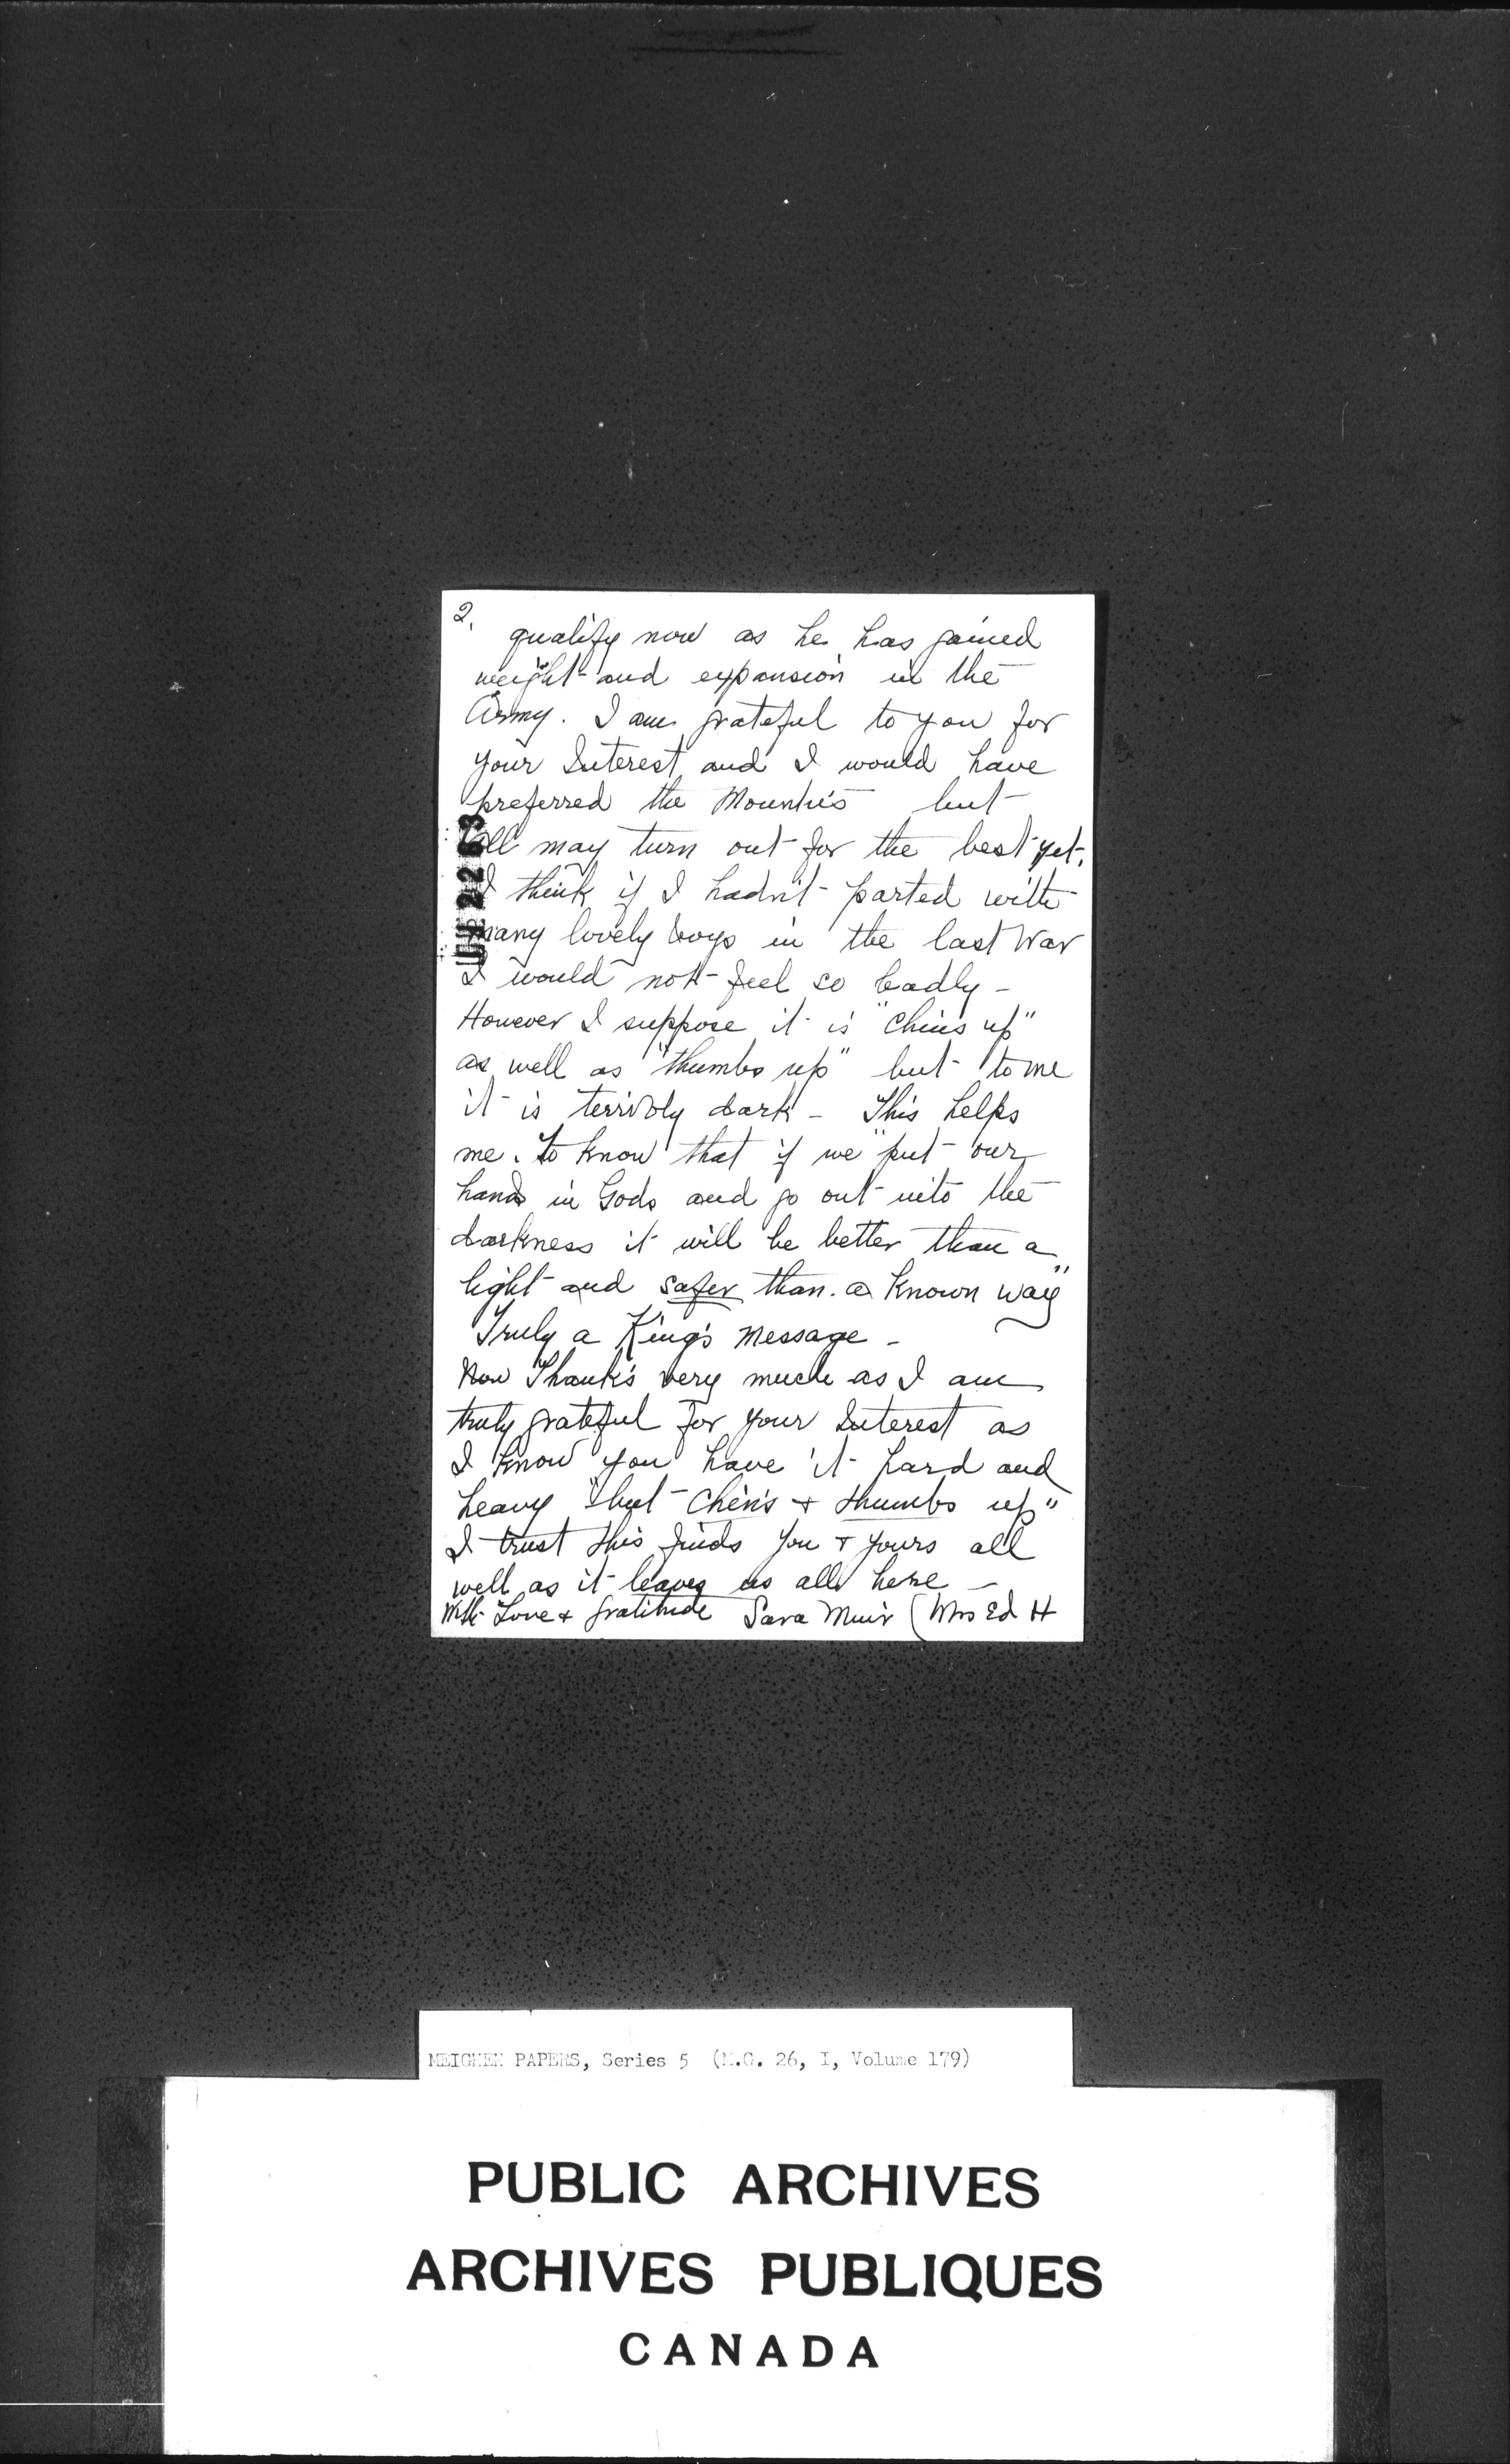 2.
qualify now as he has gained
weight and expansion in the
Army. I am grateful to you for
your Interest and I would have
preferred the Mountie's but
all may turn out for the best yet.
I think if I hadn't parted with
many lovely boys in the last War
I would not feel so badly -
However I suppose it is "Chin's up"
as well as "thumbs up" but to me
it is terribly dark - This helps
me. To know that if we "put our
hands in Gods and go out into the
darkness it will be better than a
light and safer than a known way"
Truly a King's Message -
Now Thank's very much as I am
truly grateful for your Interest as
I know you have it hard and
heavy "but Chin's + thumbs up"
I trust this finds you + yours all
well as it leaves us all here -
With Love + gratitude Sara Muir (Mrs Ed H
MEIGHEN PAPERS, Series 5 (M.G. 26, I, Volume 179)
PUBLIC ARCHIVES
ARCHIVES PUBLIQUES
CANADA